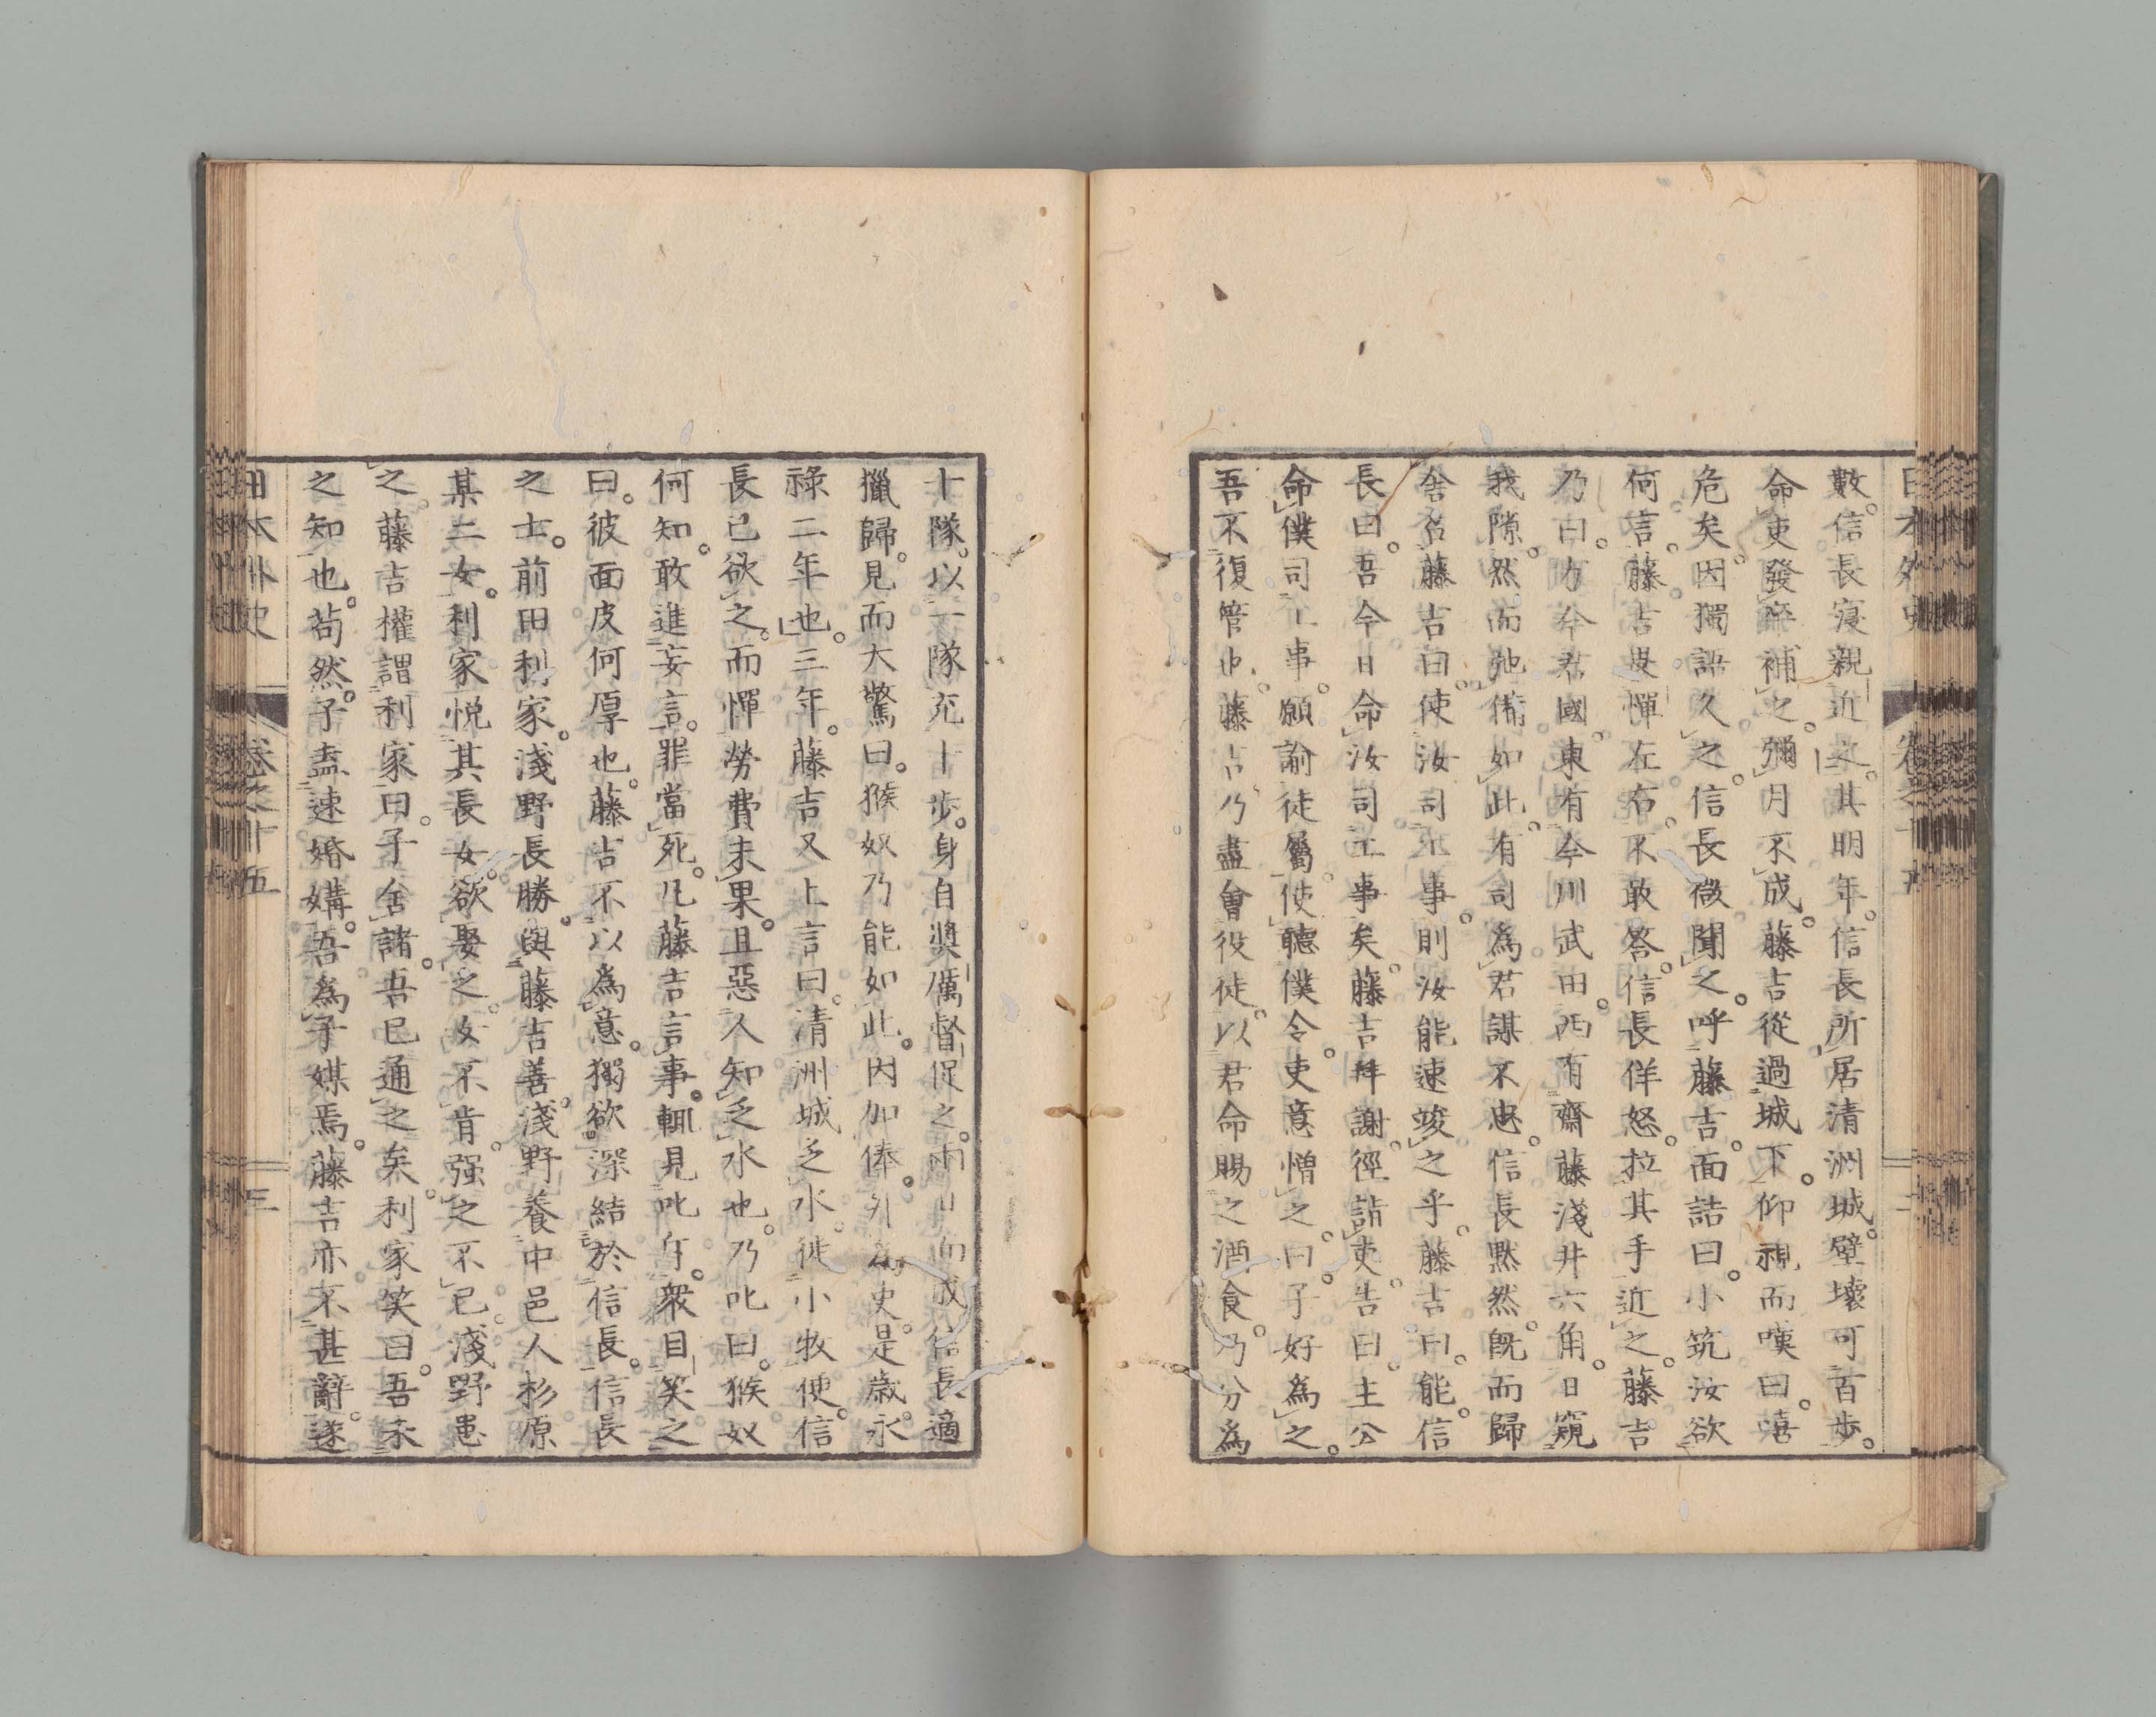 日本外史 卷之十五 二
數。信長寖親近之。其明年。信長所居清洲城。壁壞可百歩。
命吏發卒補之。彌月不成。藤吉從過城下。仰視而嘆曰。嘻
危矣。因獨語久之。信長微聞之。呼藤吉。面詰曰。小筑汝欲
何言。藤吉畏憚左右。不敢答。信長佯怒。拉其手近之。藤吉
乃曰。方今君國。東有今川武田。西有齋藤淺井六角。日窺
我隙。然而弛備如此。有司爲君謀不忠。信長默然。既而歸
舍。召藤吉曰。使汝司工事。則汝能速竣之乎。藤吉曰。能。信
長曰。吾今日命汝司工事矣。藤吉拜謝。徑詣吏告曰。主公
命僕司工事。願諭徒屬。使聽僕令。吏意憎之。曰。子好爲之。
吾不復管也。藤吉乃盡會役徒。以君命賜之酒食。乃分爲
十隊。以一隊充十歩。身自奬厲督促之。兩日而成。信長適
獵歸。見而大驚曰。猴奴乃能如此。因加俸。外爲吏。是歳。永
祿二年也。三年。藤吉又上言曰。清洲城乏水。徙小牧便。信
長已欲之。而憚勞費未果。且惡人知乏水也。乃叱曰。猴奴
何知。敢進妄言。罪當死。凡藤吉言事。輒見叱斥。衆目笑之
曰。彼面皮何厚也。藤吉不以爲意。獨欲深結於信長。信長
之士。前田利家。淺野長勝。與藤吉善。淺野養中邑人杉原
某二女。利家悦其長女。欲娶之。女不肯。强之不已。淺野患
之。藤吉權謂利家曰。子舍諸。吾已通之矣。利家笑曰。吾未
之知也。苟然。子盍速婚媾。吾爲子媒焉。藤吉亦不甚辭。遂
日本外史 卷之十五 三